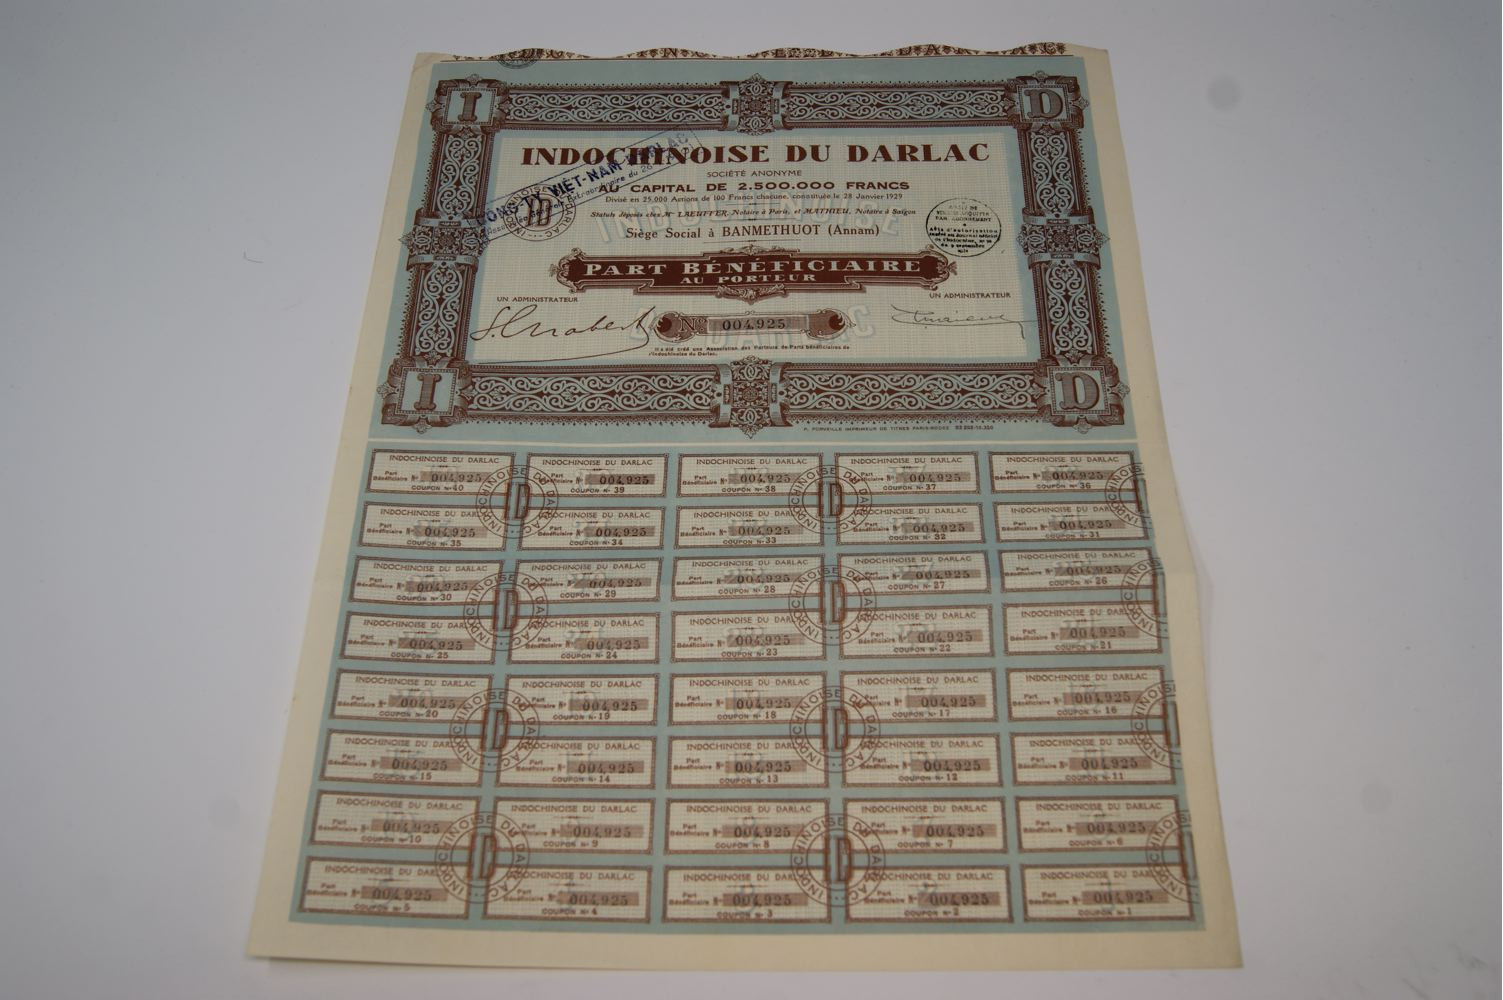 I D
INDOCHINOISE DU DARLAC
SOCIÉTÉ ANONYME
AU CAPITAL DE 2.500.000 FRANCS
Divisé en 25.000 Actions de 100 Francs chacune, constituée le 28 Janvier 1929
Statuts déposés chez Me LAEUFFER, Notaire à Paris, et MATHIEU, Notaire à Saïgon
Siège Social à BANMETHUOT (Annam)
VIÊT-NAM DARLAC
PART BÉNÉFICIAIRE
AU PORTEUR
UN ADMINISTRATEUR UN ADMINISTRATEUR
No 004,925
Il a été créé une Association des Porteurs de Parts bénéficiaires de
l'Indochinoise du Darlac.
I D
IMPRIMEUR DE TITRES PARIS-RODEZ
INDOCHINOISE DU DARLAC INDOCHINOISE DU DARLAC INDOCHINOISE DU DARLAC INDOCHINOISE DU DARLAC INDOCHINOISE DU DARLAC
Part Bénéficiaire No 004,925 Part Bénéficiaire No 004,925 Part Bénéficiaire No 004,925 Part Bénéficiaire No 004,925 Part Bénéficiaire No 004,925
COUPON No 40 COUPON No 39 COUPON No 38 COUPON No 37 COUPON No 36
INDOCHINOISE DU DARLAC INDOCHINOISE DU DARLAC INDOCHINOISE DU DARLAC INDOCHINOISE DU DARLAC INDOCHINOISE DU DARLAC
Part Bénéficiaire No 004,925 Part Bénéficiaire No 004,925 Part Bénéficiaire No 004,925 Part Bénéficiaire No 004,925 Part Bénéficiaire No 004,925
COUPON No 35 COUPON No 34 COUPON No 33 COUPON No 32 COUPON No 31
INDOCHINOISE DU DARLAC INDOCHINOISE DU DARLAC INDOCHINOISE DU DARLAC INDOCHINOISE DU DARLAC INDOCHINOISE DU DARLAC
Part Bénéficiaire No 004,925 Part Bénéficiaire No 004,925 Part Bénéficiaire No 004,925 Part Bénéficiaire No 004,925 Part Bénéficiaire No 004,925
COUPON No 30 COUPON No 29 COUPON No 28 COUPON No 27 COUPON No 26
INDOCHINOISE DU DARLAC INDOCHINOISE DU DARLAC INDOCHINOISE DU DARLAC INDOCHINOISE DU DARLAC INDOCHINOISE DU DARLAC
Part Bénéficiaire No 004,925 Part Bénéficiaire No 004,925 Part Bénéficiaire No 004,925 Part Bénéficiaire No 004,925 Part Bénéficiaire No 004,925
COUPON No 25 COUPON No 24 COUPON No 23 COUPON No 22 COUPON No 21
INDOCHINOISE DU DARLAC INDOCHINOISE DU DARLAC INDOCHINOISE DU DARLAC INDOCHINOISE DU DARLAC INDOCHINOISE DU DARLAC
Part Bénéficiaire No 004,925 Part Bénéficiaire No 004,925 Part Bénéficiaire No 004,925 Part Bénéficiaire No 004,925 Part Bénéficiaire No 004,925
COUPON No 20 COUPON No 19 COUPON No 18 COUPON No 17 COUPON No 16
INDOCHINOISE DU DARLAC INDOCHINOISE DU DARLAC INDOCHINOISE DU DARLAC INDOCHINOISE DU DARLAC INDOCHINOISE DU DARLAC
Part Bénéficiaire No 004,925 Part Bénéficiaire No 004,925 Part Bénéficiaire No 004,925 Part Bénéficiaire No 004,925 Part Bénéficiaire No 004,925
COUPON No 15 COUPON No 14 COUPON No 13 COUPON No 12 COUPON No 11
INDOCHINOISE DU DARLAC INDOCHINOISE DU DARLAC INDOCHINOISE DU DARLAC INDOCHINOISE DU DARLAC INDOCHINOISE DU DARLAC
Part Bénéficiaire No 004,925 Part Bénéficiaire No 004,925 Part Bénéficiaire No 004,925 Part Bénéficiaire No 004,925 Part Bénéficiaire No 004,925
COUPON No 10 COUPON No 9 COUPON No 8 COUPON No 7 COUPON No 6
INDOCHINOISE DU DARLAC INDOCHINOISE DU DARLAC INDOCHINOISE DU DARLAC INDOCHINOISE DU DARLAC INDOCHINOISE DU DARLAC
Part Bénéficiaire No 004,925 Part Bénéficiaire No 004,925 Part Bénéficiaire No 004,925 Part Bénéficiaire No 004,925 Part Bénéficiaire No 004,925
COUPON No 5 COUPON No 4 COUPON No 3 COUPON No 2 COUPON No 1